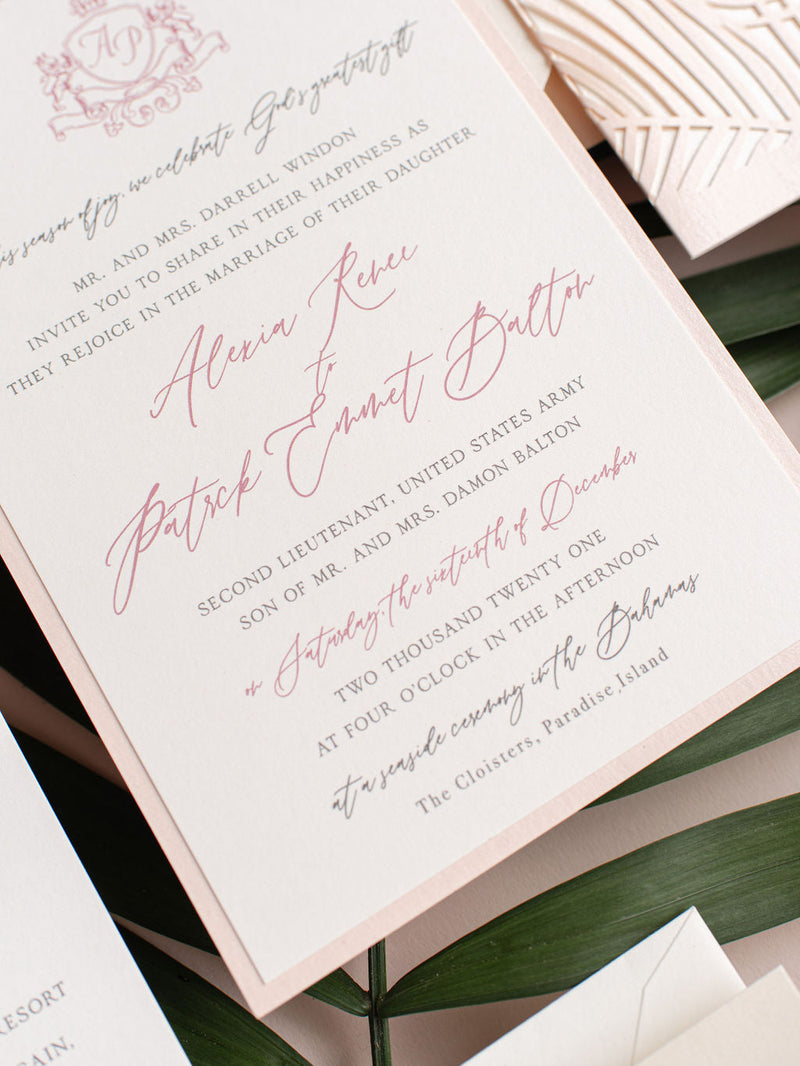 AP
his season of joy, we celebrate God's greatest gift
MR. AND MRS. DARRELL WINDON
INVITE YOU TO SHARE IN THEIR HAPPINESS AS
THEY REJOICE IN THE MARRIAGE OF THEIR DAUGHTER
Alexia Renee
to
Patrick Emmet Balton
SECOND LIEUTENANT, UNITED STATES ARMY
SON OF MR. AND MRS. DAMON BALTON
on Saturday, the sixteenth of December
TWO THOUSAND TWENTY ONE
AT FOUR O'CLOCK IN THE AFTERNOON
at a seaside ceremony in the Bahamas
The Cloisters, Paradise Island
RESORT